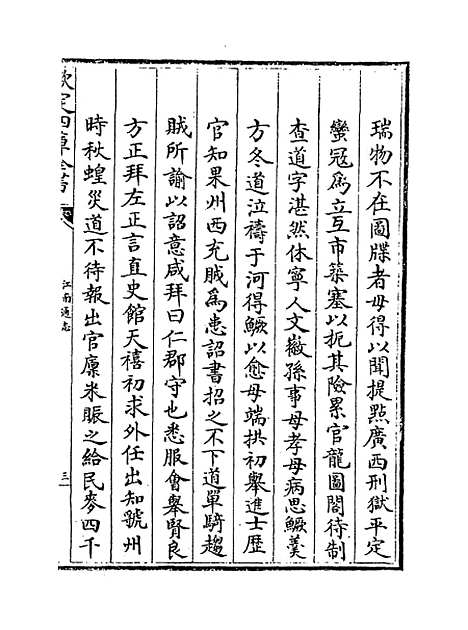 瑞物不在圖牒者毋得以聞提點廣西刑獄平定
蠻冦爲立互市築塞以扼其險累官龍圖閣待制
查道字湛然休寧人文徽孫事母孝母病思鱖羹
方冬道泣禱于河得鱖以愈母端拱初舉進士歴
官知果州西充賊爲患詔書招之不下道單騎趨
賊所諭以詔意咸拜曰仁郡守也悉服會舉賢良
方正拜左正言直史館天禧初求外任出知號州
時秋蝗災道不待報出官廩米賑之給民麥四千
欽定四庫全書
江南通志
三